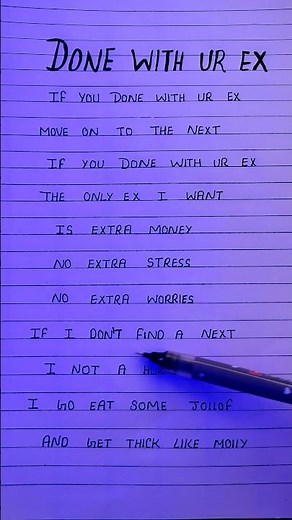 DONE WITH UR EX
IF YOU DONE WITH UR EX
MOVE ON TO THE NEXT
IF YOU DONE WITH UR EX
THE ONLY EX I WANT
IS EXTRA MONEY
NO EXTRA STRESS
NO EXTRA WORRIES
IF I DON'T FIND A NEXT
I NOT A
I GO EAT SOME JOLLOF
AND GET THICK LIKE MOLLY